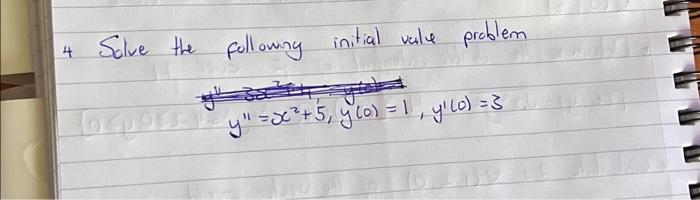 4 Solve the following initial value problem
y'' = x² + 5, y(0) = 1, y'(0) = 3